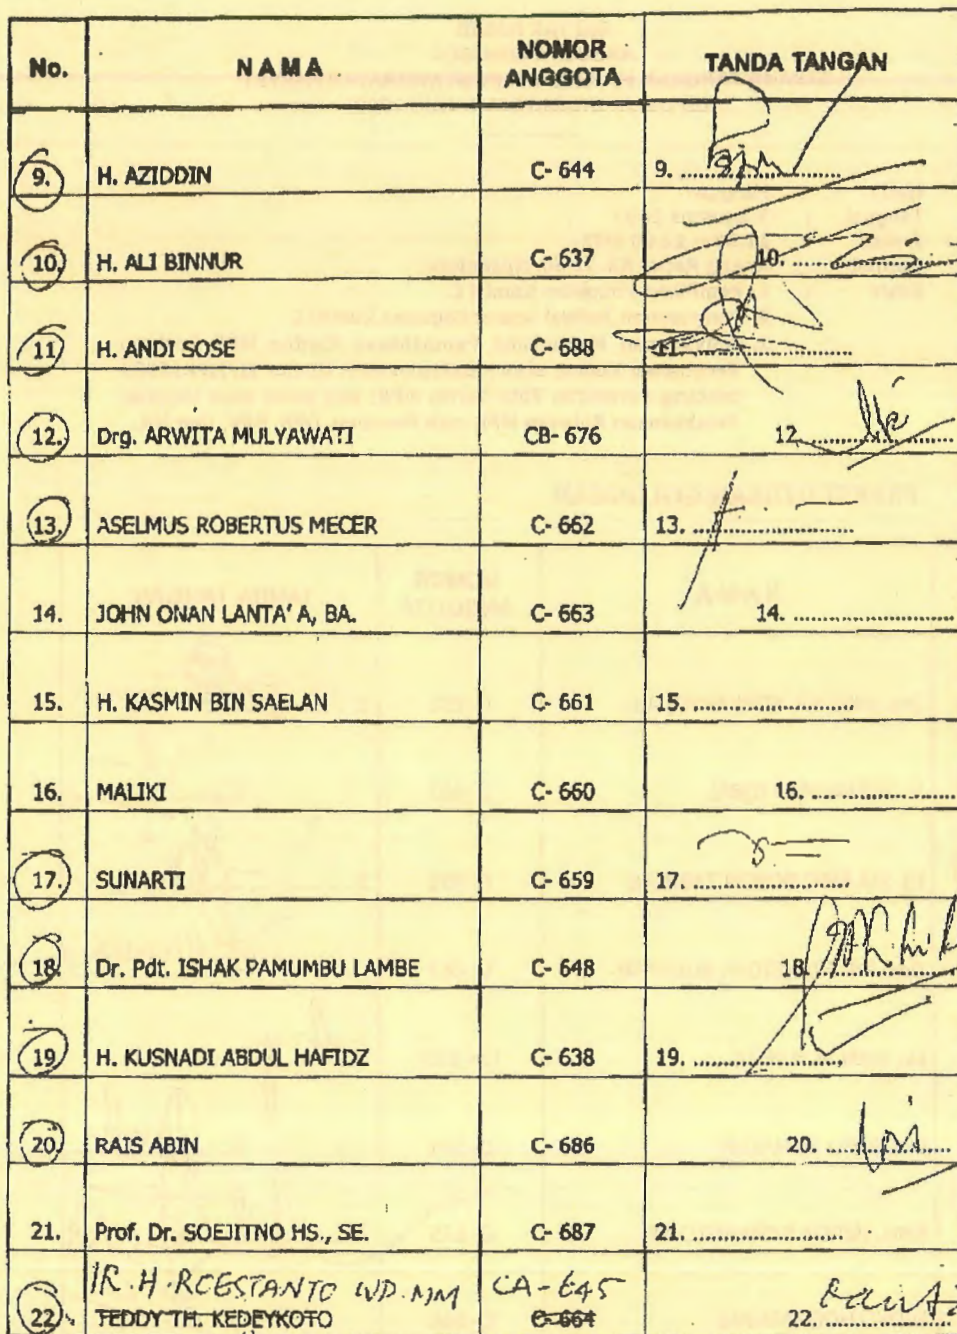 No. NAMA NOMOR ANGGOTA TANDA TANGAN
9. H. AZIDDIN C- 644 9. ....................
10. H. ALI BINNUR C- 637 10. ....................
11. H. ANDI SOSE C- 688 11. ....................
12. Drg. ARWITA MULYAWATI CB- 676 12. ....................
13. ASELMUS ROBERTUS MECER C- 662 13. ....................
14. JOHN ONAN LANTA' A, BA. C- 663 14. ....................
15. H. KASMIN BIN SAELAN C- 661 15. ....................
16. MALIKI C- 660 16. ....................
17. SUNARTI C- 659 17. ....................
18. Dr. Pdt. ISHAK PAMUMBU LAMBE C- 648 18. ....................
19. H. KUSNADI ABDUL HAFIDZ C- 638 19. ....................
20. RAIS ABIN C- 686 20. ....................
21. Prof. Dr. SOEJITNO HS., SE. C- 687 21. ....................
IR. H. ROESTANTO WD. MM CA-645
22. TEDDY TH. KEDEYKOTO C-664 22. ....................